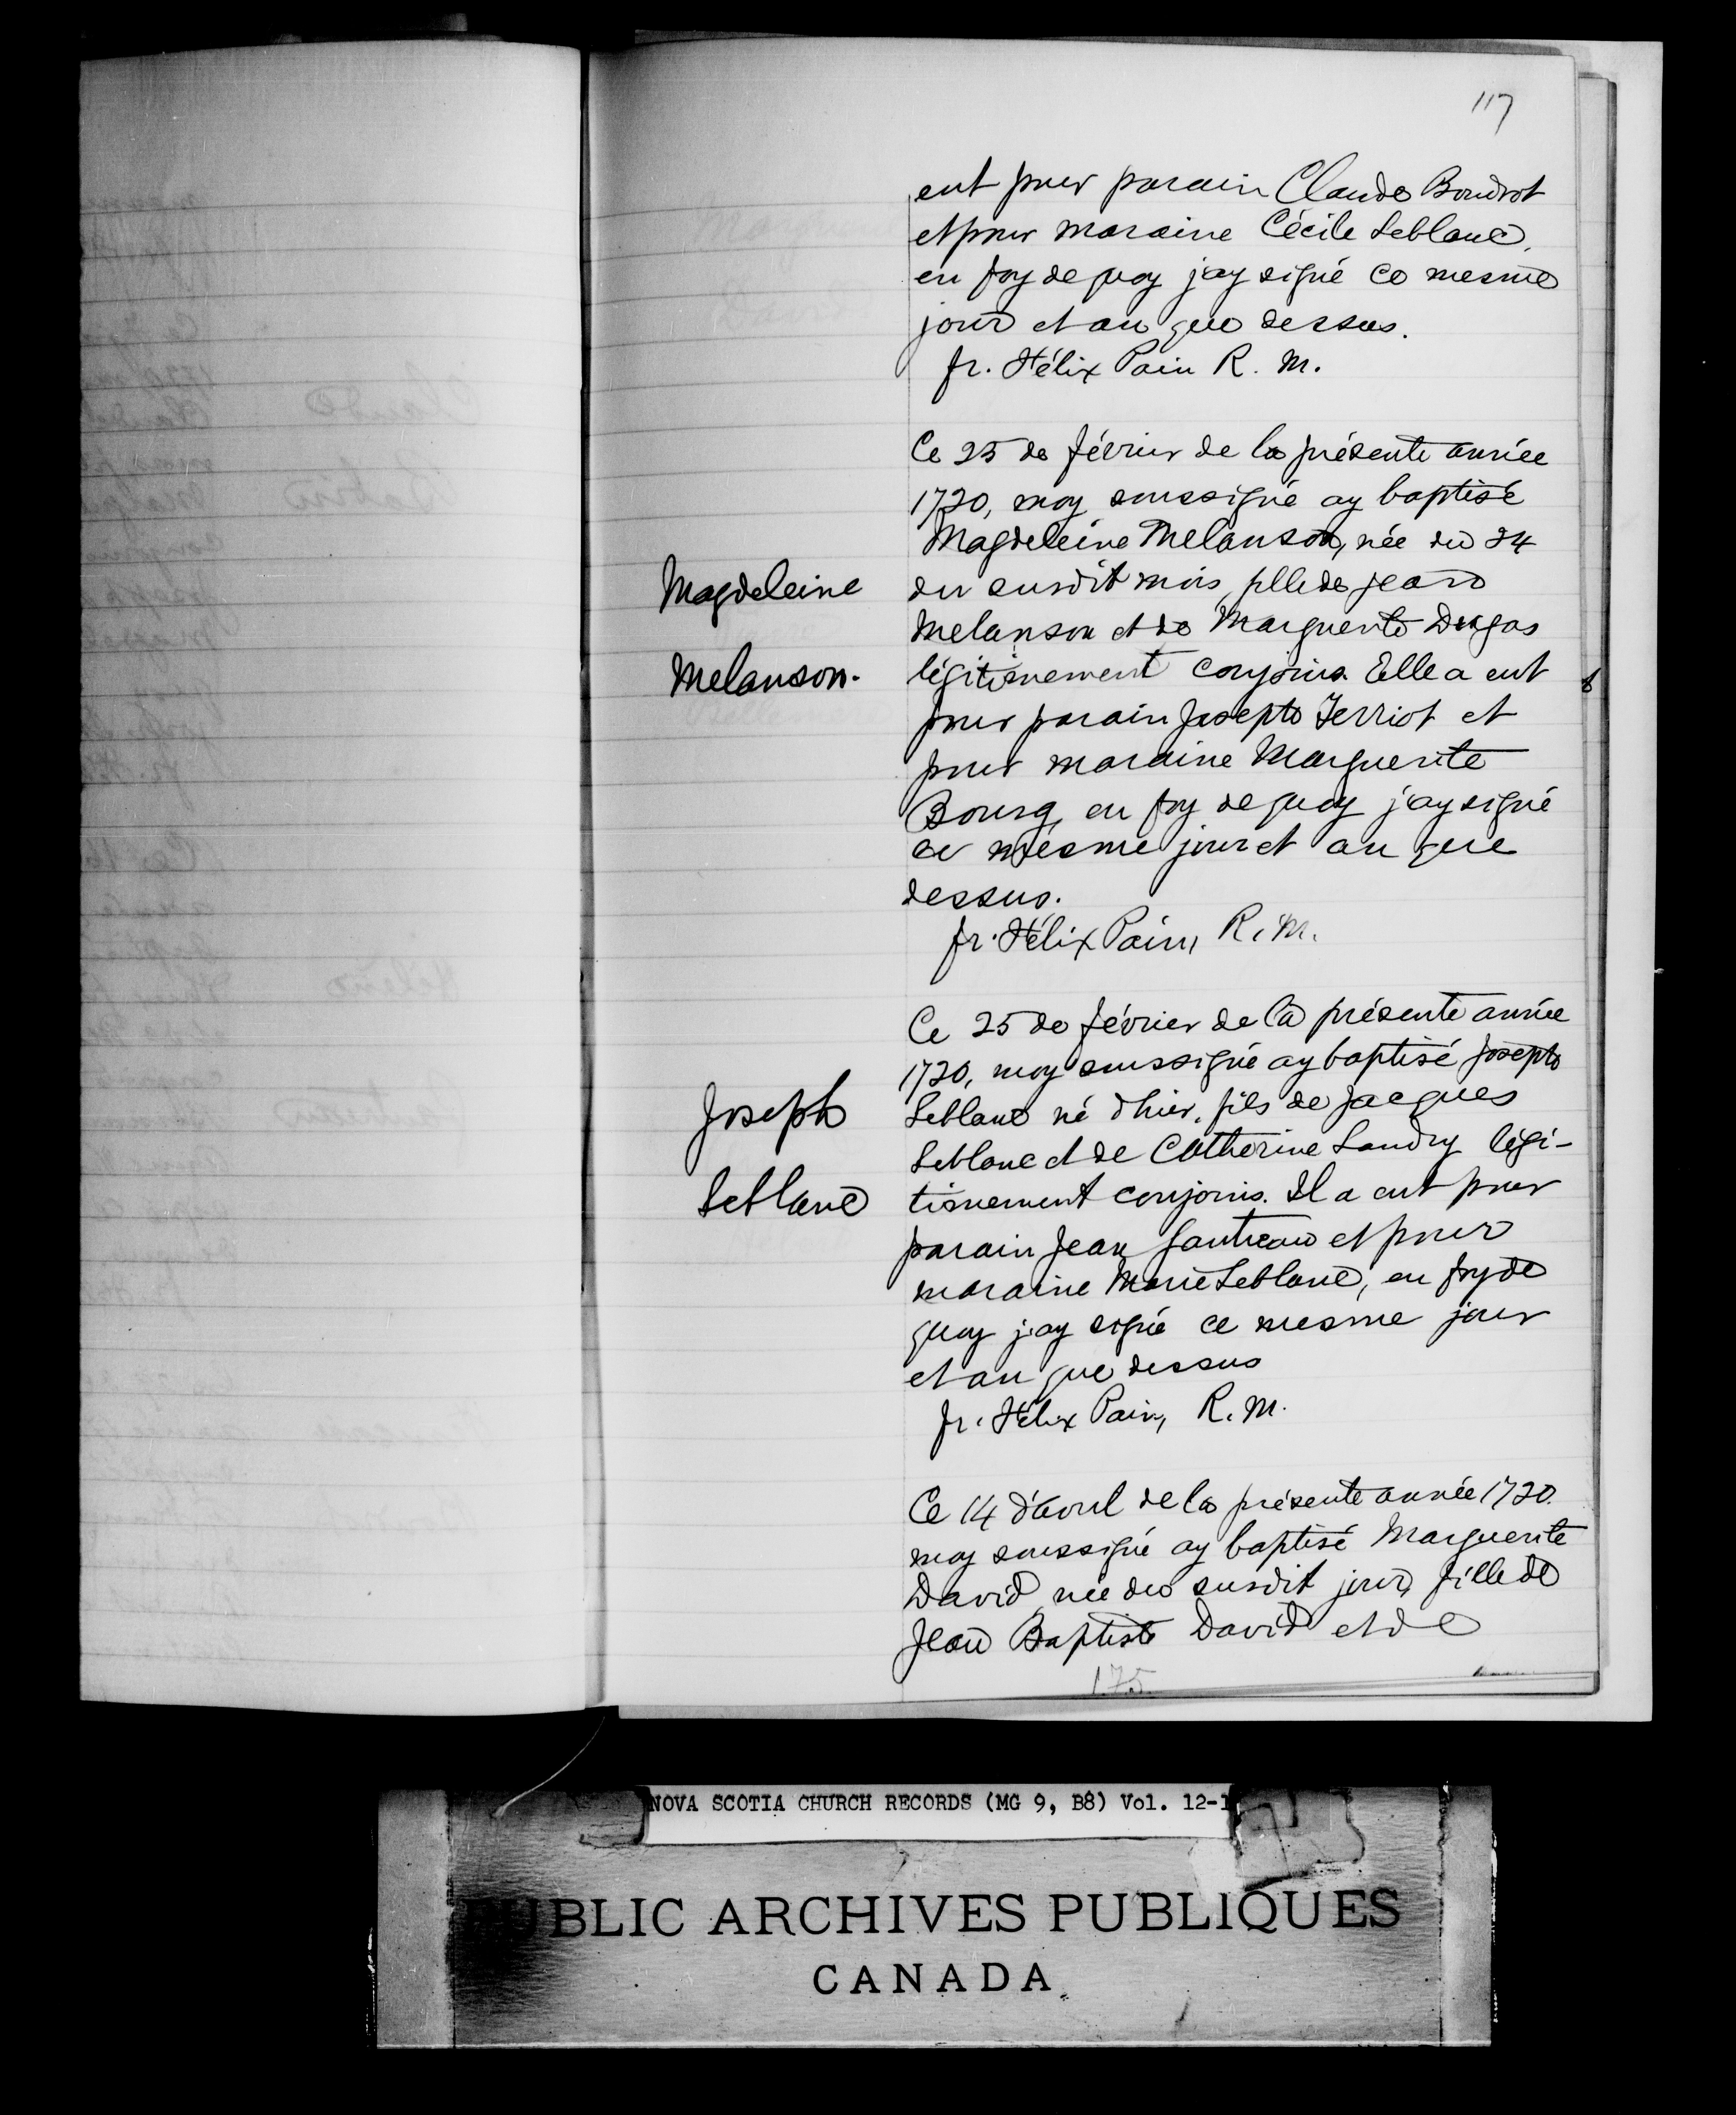 117
eut pour parain Claude Boudrot
et pour maraine Cécile Leblanc,
en foy de quoy j'ay signé ce mesme
jour et an que dessus.
fr. Félix Pain R. M.
Ce 25 de février de la présente année
1720, moy soussigné ay baptisé
Magdeleine Melanson, née du 24
Magdeleine
du susdit mois, fille de Jean
Melanson et de Marguerite Dugas
Melanson.
légitimement conjoins. Elle a eut
pour parain Joseph Terriot et
pour maraine Marguerite
Bourg, en foy de quoy j'ay signé
ce mesme jour et an que
dessus.
fr. Félix Pain, R. M.
Ce 25 de février de la présente année
1720, moy soussigné ay baptisé Joseph
Joseph
Leblanc né d'hier, fils de Jacques
Leblanc et de Catherine Landry légi-
Leblanc
timement conjoins. Il a eut pour
parain Jean Gautreau et pour
maraine Marie Leblanc, en foy de
quoy j'ay signé ce mesme jour
et an que dessus
fr. Félix Pain, R. M.
Ce 14 d'avril de la présente année 1720.
moy soussigné ay baptisé Marguerite
David, née du susdit jour, fille de
Jean Baptiste David et de
175
NOVA SCOTIA CHURCH RECORDS (MG 9, B8) Vol. 12-1
PUBLIC ARCHIVES PUBLIQUES
CANADA